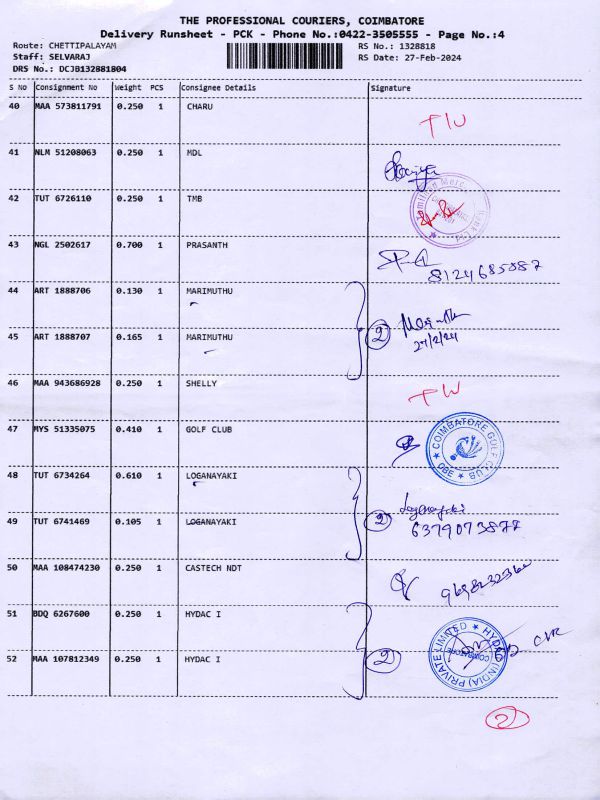 THE PROFESSIONAL COURIERS, COIMBATORE
Delivery Runsheet - PCK - Phone No.:0422-3505555 - Page No.:4
Route: CHETTIPALAYAM RS No.: 1328818
Staff: SELVARAJ RS Date: 27-Feb-2024
DRS No.: DCJB132881804
S No Consignment No Weight PCS Consignee Details Signature
40 MAA 573811791 0.250 1 CHARU
41 NLM 51208063 0.250 1 MDL
42 TUT 6726110 0.250 1 TMB
43 NGL 2502617 0.700 1 PRASANTH
8124685887
44 ART 1888706 0.130 1 MARIMUTHU
2
27/2/24
45 ART 1888707 0.165 1 MARIMUTHU
46 MAA 943686928 0.250 1 SHELLY
47 MYS 51335075 0.410 1 GOLF CLUB
COIMBATORE GOLF CLUB
CBE
48 TUT 6734264 0.610 1 LOGANAYAKI
Loganayaki
49 TUT 6741469 0.105 1 LOGANAYAKI
2
6379073877
50 MAA 108474230 0.250 1 CASTECH NDT
51 BDQ 6267600 0.250 1 HYDAC I
HYDAC (INDIA) PRIVATE LIMITED
COIMBATORE
52 MAA 107812349 0.250 1 HYDAC I
2
2